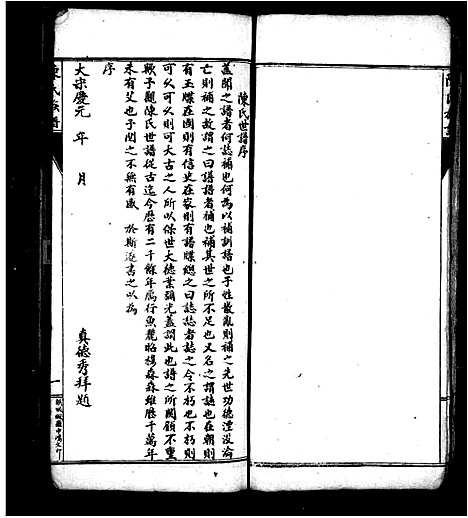 陳氏世譜序
蓋聞之譜者何誌補也何為以補訓譜也子姓散亂則補之先世功德湮没淪
亡則補之故謂之曰譜譜者補也補其世之所不足也又名之謂誌也在朝則
有玉牒在國則有信史在家則有譜牒總之曰誌誌者誌之今不朽也不朽則
可久可久則可大古之人所以保世大德業彌光蓋謂此也譜之所關顧不重
歟予觀陳氏世譜從古迄今歷有二千餘年鴈行魚麗昭穆森森雖歷千萬年
未有艾也予閱之不無有感於斯遂書之以為
序
大宋慶元 年 月
真德秀拜題
陳氏族譜
一